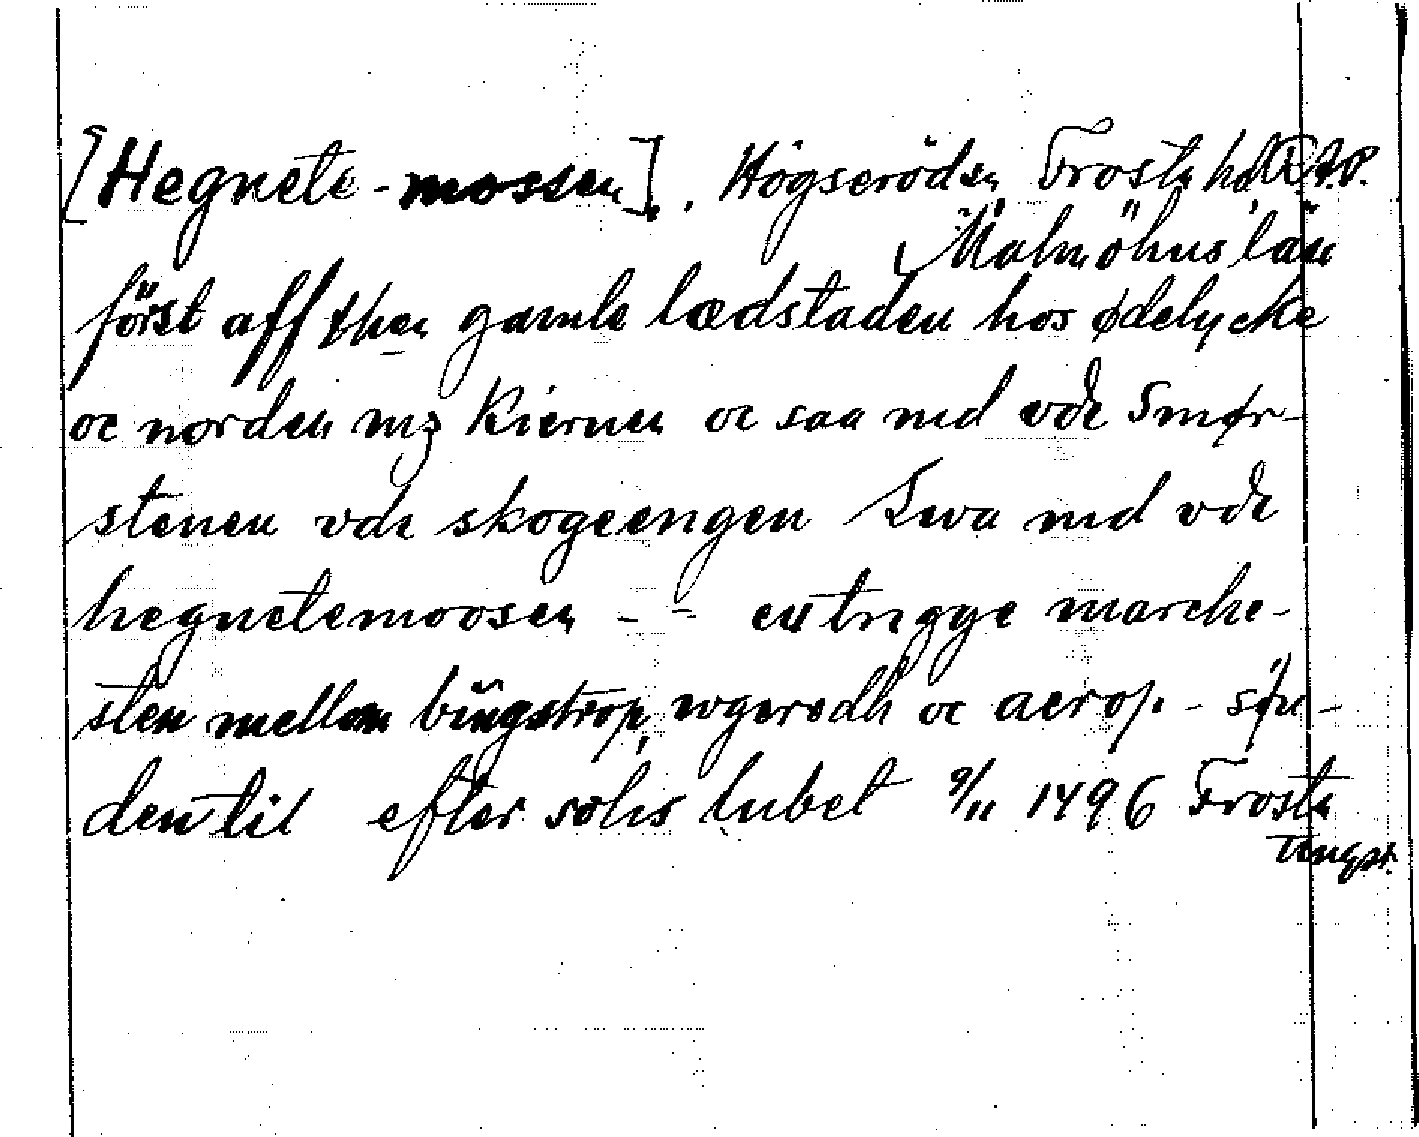 [Hegnete-mossen]. Högseröds sn, Frosta hd,
Malmöhus län
först aff then gamle lædstaden hos ødelycke
oc norden mz Kiernen oc saa ned vdi Smør-
stenen vdi skogeengen Swa ned vdi
hegnetemoosen - - en trygge marche-
sten mellom bingstrop, wgeredh oc aerop - søn-
den til efter solis lubet 9/11 1496 Frosta
tingsr.